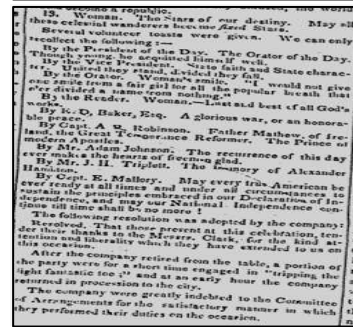 become a republic.
13. Woman. The Stars of our destiny. May all
these celestial wanderers become fixed Stars.
Several volunteer toasts were given. We can only
recollect the following:—
By the President of the Day. The Orator of the Day.
Though young, he acquitted himself well.
By the Vice President. State faith and State charac-
ter. United they stand, divided they fall.
By the Orator. Woman's smile. "I would not give
one smile from a fair girl for all the popular breath that
e'er divided a name from nothing."
By the Reader. Woman.—Last and best of all God's
works.
By E. D. Baker, Esq. A glorious war, or an honora-
ble peace.
By Capt. A. Robinson. Father Mathew, of Ire-
land, the Great Temperance Reformer. The Prince of
modern Apostles.
By Mr. Adam Johnson. The recurrence of this day
ever makes the hearts of freemen glad.
By Mr. J. H. Triplett. The memory of Alexander
Hamilton.
By Capt. E. Mallory. May every true American be
ever ready at all times and under all circumstances to
sustain the principles embraced in our Declaration of In-
dependence, and may our National Independence con-
tinue till time shall be no more!
The following resolution was adopted by the company:
Resolved, That those present at this celebration, ten-
der their thanks to the Messrs. Clark, for the kind at-
tention and liberality which they have extended to us on
this occasion.
After the company retired from the table, a portion of
the party were for a short time engaged in "tripping the
light fantastic toe;" and at an early hour the company
returned in procession to the city.
The company were greatly indebted to the Committee
of Arrangements for the satisfactory manner in which
they performed their duties on the occasion.